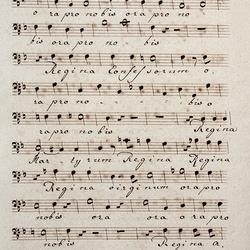 ora pro nobis ora pro no
bis ora pro no - bis
Regina Confessorum o.
ra pro no - - bis o
ra pro nobis Regina
Mar - tyrum Regina Regina
Regina virginum ora pro
nobis ora ora ora pro
nobis Regina